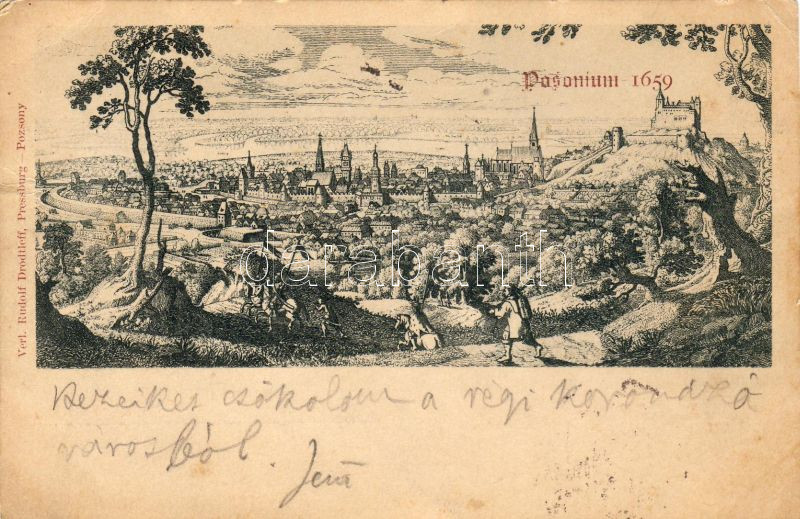 Posonium 1659
Verl. Rudolf Drodtleff, Pressburg – Pozsony
darabanth
Kezeiket csókolom a régi koronázó
városból.
Jenő